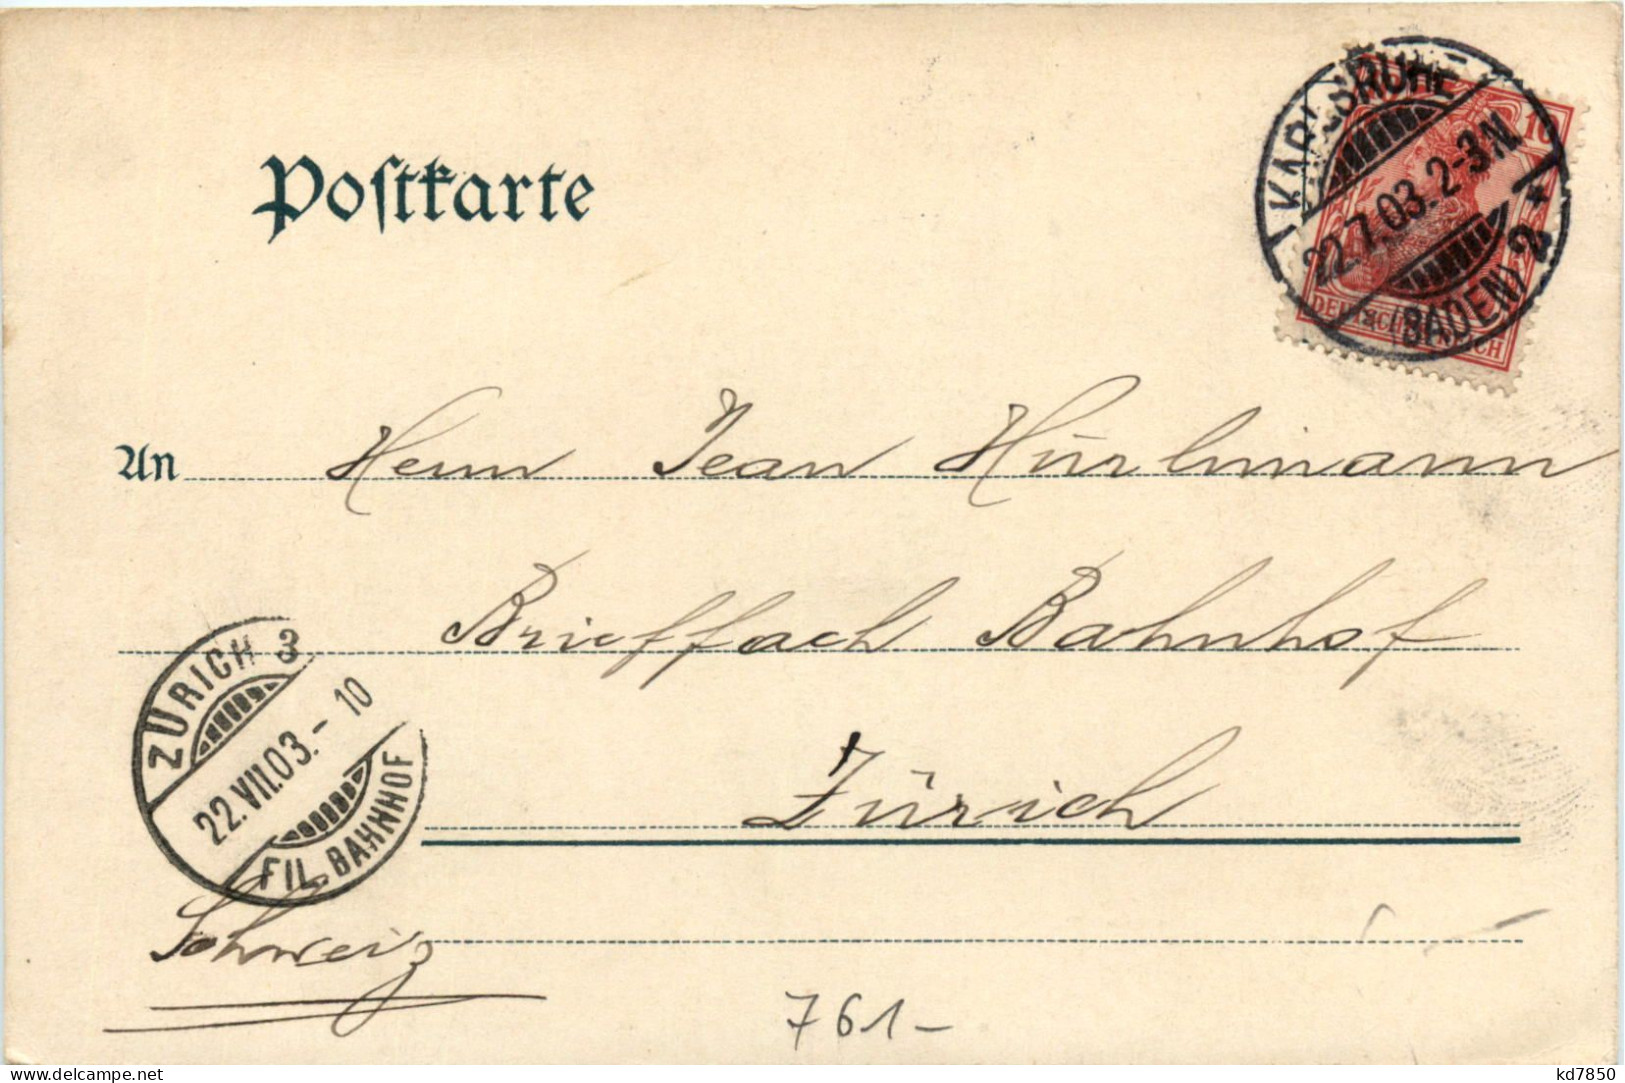 Postkarte
KARLSRUHE
22.7.03.2-3N.
(BADEN) 2 *
10
DEUTSCHES REICH
An Herrn Jean Hürlimann
Brieffach Bahnhof
Zürich
Schweiz
ZÜRICH 3
22.VII.03.-10
FIL. BAHNHOF
761-
delcampe.net
kd7850